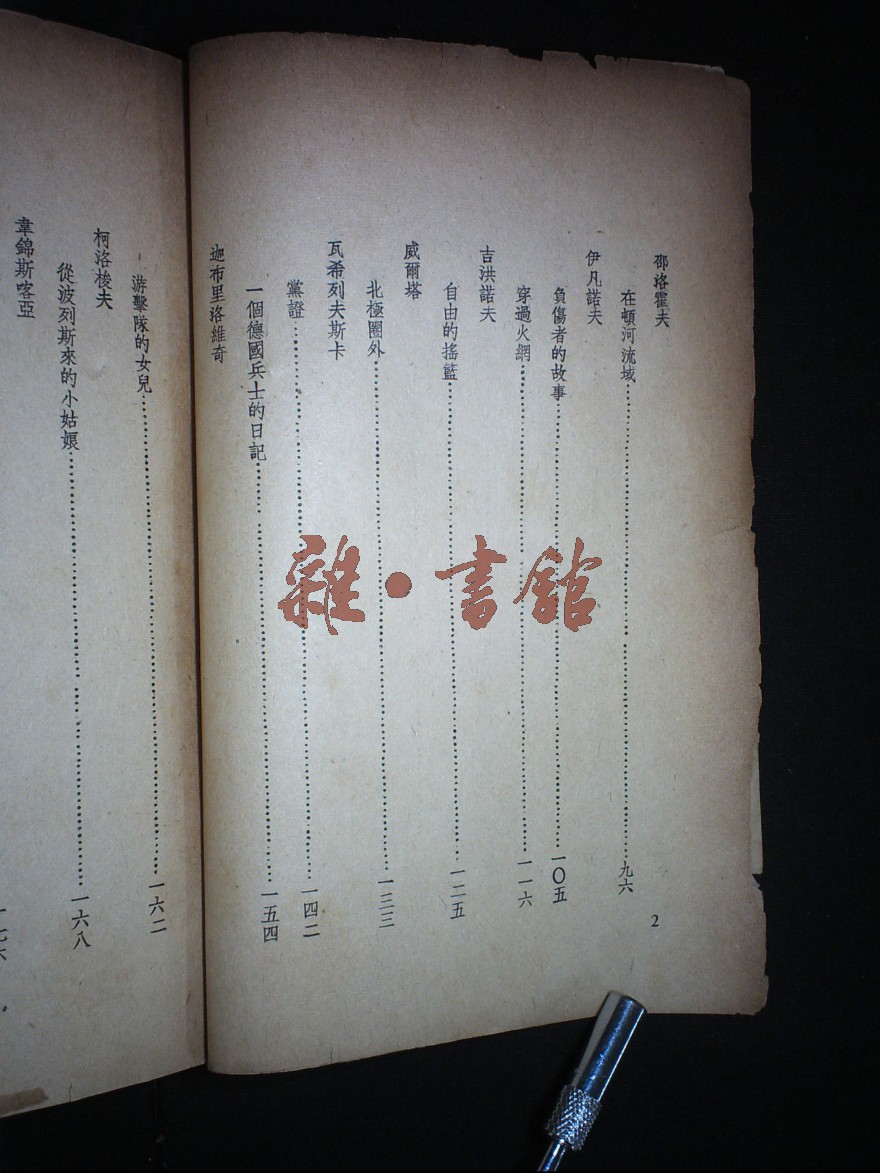 邵洛霍夫
在頓河流域……九六
伊凡諾夫
負傷者的故事……一〇五
穿過火網……一一六
吉洪諾夫
自由的搖籃……一二五
威爾塔
北極圈外……一三三
瓦希列夫斯卡
黨證……一四二
一個德國兵士的日記……一五四
迦布里洛維奇
2
游擊隊的女兒……一六二
柯洛梭夫
從波列斯來的小姑娘……一六八
韋錦斯喀亞
雜·書館